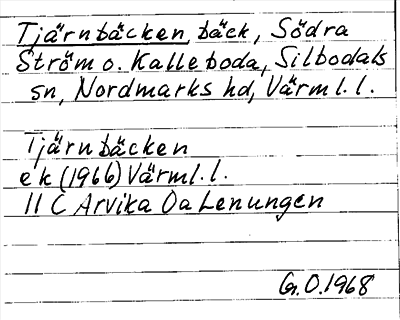 Tjärnbäcken, bäck, Södra
Ström o. Kalleboda, Silbodals
sn, Nordmarks hd, Värml. l.
Tjärnbäcken
ek (1966) Värml. l.
11 C Arvika 0a Lenungen
G. O. 1968